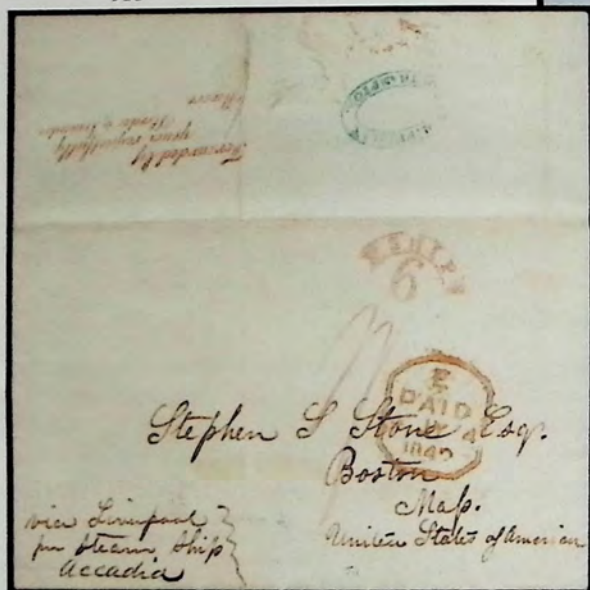 Forwarded by
your respectfully
SHIP
6
PAID
4
184
Stephen S Stone Esq.
Boston
Mass.
United States of American
via Liverpool
per Steam Ship
Accadia